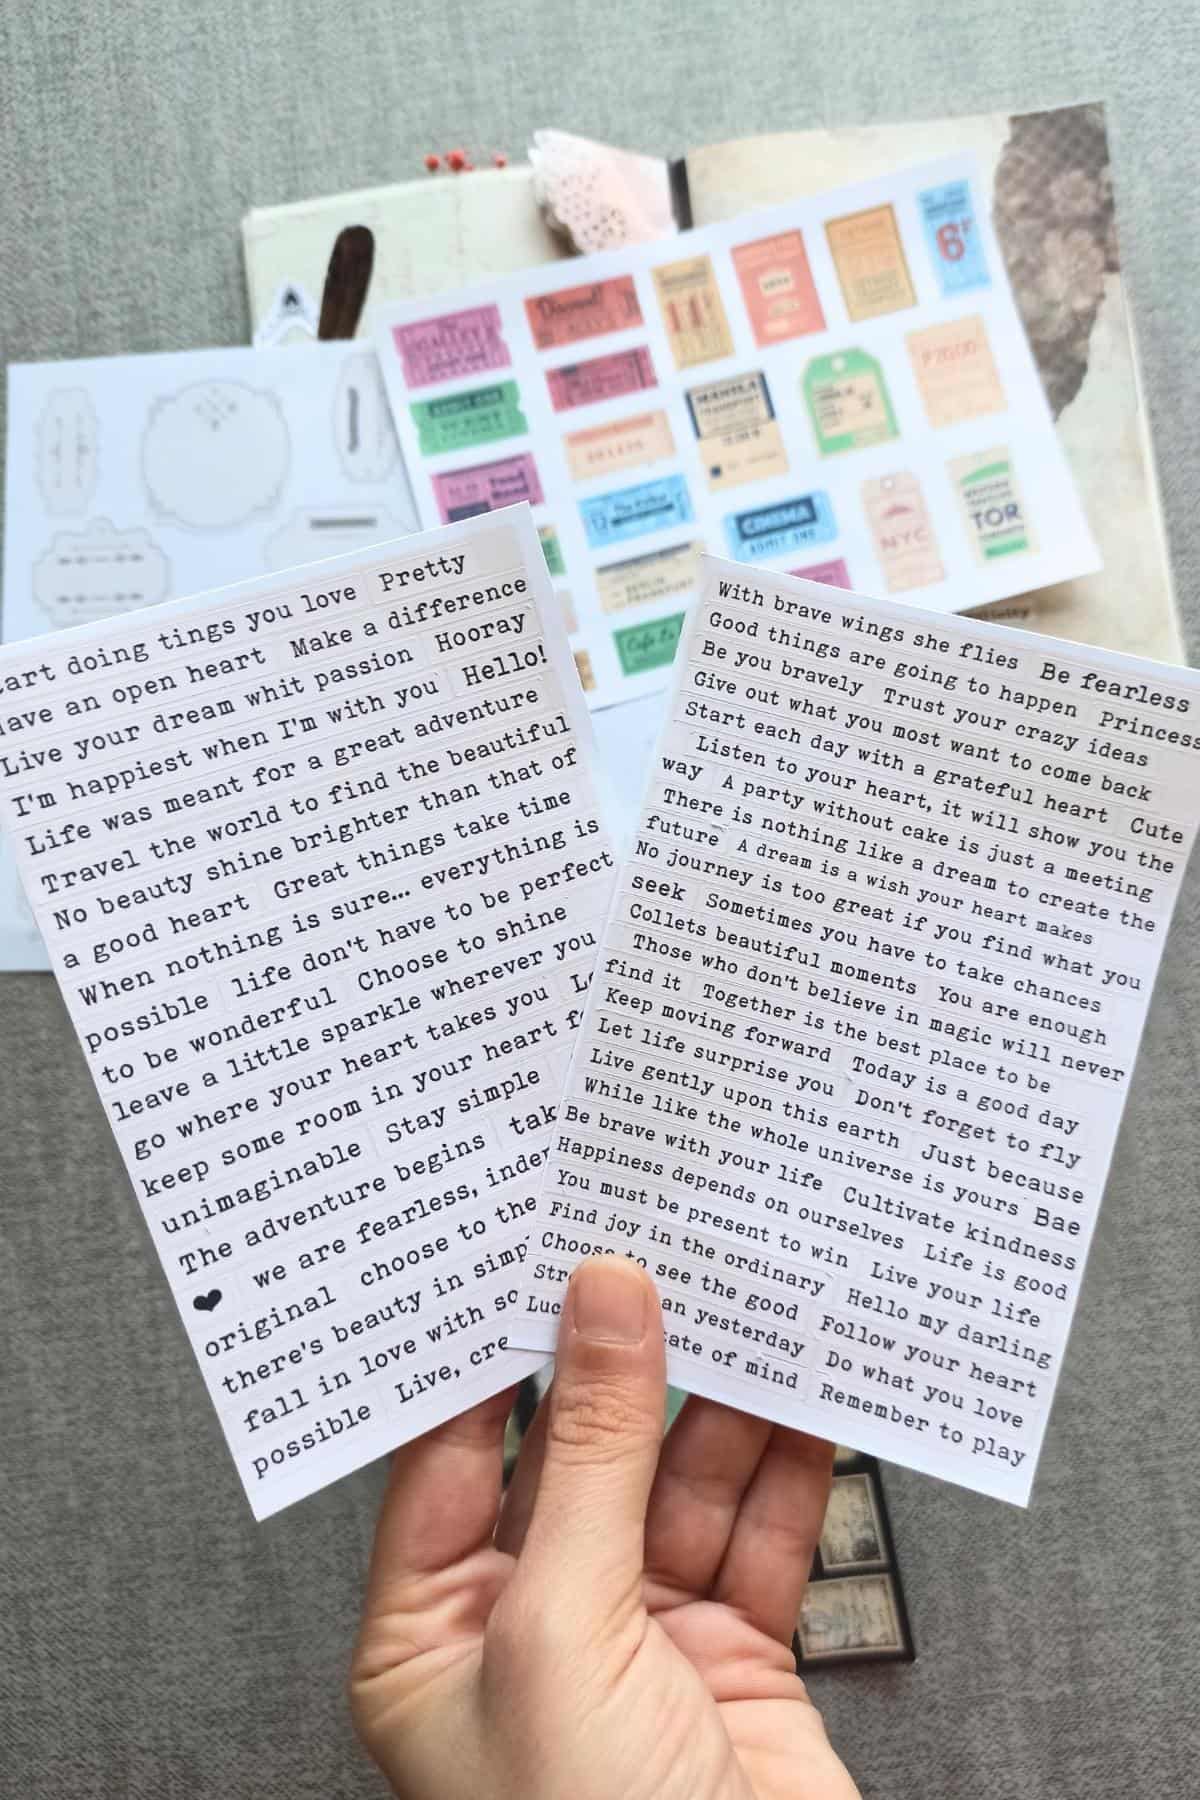 GALAXY
Discount!
6
MANILA
P7000
CINEMA
ADMIT ONE
NYC
TOR
BERLIN
FRANKFURT
tart doing tings you love Pretty
Have an open heart Make a difference
Live your dream whit passion Hooray
I'm happiest when I'm with you Hello!
Life was meant for a great adventure
Travel the world to find the beautiful
No beauty shine brighter than that of
a good heart Great things take time
When nothing is sure… everything is
possible life don't have to be perfect
to be wonderful Choose to shine
leave a little sparkle wherever you
go where your heart takes you
keep some room in your heart
unimaginable Stay simple
The adventure begins tak
❤ we are fearless,
original choose to the
there's beauty in simp
fall in love with so
possible Live, cre
With brave wings she flies Be fearless
Good things are going to happen Princess
Be you bravely Trust your crazy ideas
Give out what you most want to come back
Start each day with a grateful heart Cute
Listen to your heart, it will show you the
way A party without cake is just a meeting
There is nothing like a dream to create the
future A dream is a wish your heart makes
No journey is too great if you find what you
seek Sometimes you have to take chances
Collets beautiful moments You are enough
Those who don't believe in magic will never
find it Together is the best place to be
Keep moving forward Today is a good day
Let life surprise you Don't forget to fly
Live gently upon this earth Just because
While like the whole universe is yours Bae
Be brave with your life Cultivate kindness
Happiness depends on ourselves Life is good
You must be present to win Live your life
Find joy in the ordinary Hello my darling
Choose to see the good Follow your heart
Str an yesterday Do what you love
Luc tate of mind Remember to play